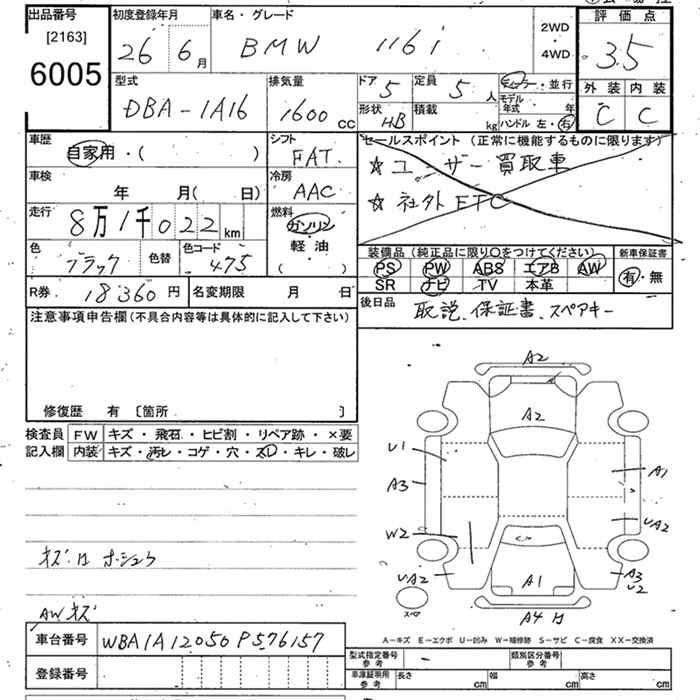 出品番号
[2163]
6005
初度登録年月
26 6月
車名・グレード
BMW 116i
2WD
・
4WD
評価点
3.5
外装 内装
C C
型式
DBA-1A16
排気量
1600cc
ドア 5
定員 5人
形状 HB
積載 kg
ディーラー・並行
モデル年式 年
ハンドル 左・右
車歴
自家用・( )
シフト
FAT
車検
年 月( 日)
冷房
AAC
走行
8万1千022km
燃料
ガソリン
軽・油
( )
色
ブラック
色替
色コード
475
セールスポイント (正常に機能するものに限ります)
☆ユーザー買取車
☆社外ETC
装備品(純正品に限り○をつけてください)
PS PW ABS エアB AW
SR ナビ TV 本革
新車保証書
有・無
R券 18360円
名変期限 月 日
後日品
取説、保証書、スペアキー
注意事項申告欄(不具合内容等は具体的に記入して下さい)
修復歴 有 〔箇所 〕
検査員 FW キズ・飛石・ヒビ割・リペア跡・×要
記入欄 内装 キズ・汚レ・コゲ・穴・スレ・キレ・破レ
A2
A2
U1
A3
A1
UA2
W2
UA2
A1
A3
U2
スペア
A4
AWキズ
A-キズ E-エクボ U-凹み W-補修跡 S-サビ C-腐食 XX-交換済
車台番号 WBA1A12050P576157
登録番号
型式指定番号 参考 -
類別区分番号 参考
車庫証明用 参考 長さ cm 幅 cm 高さ cm